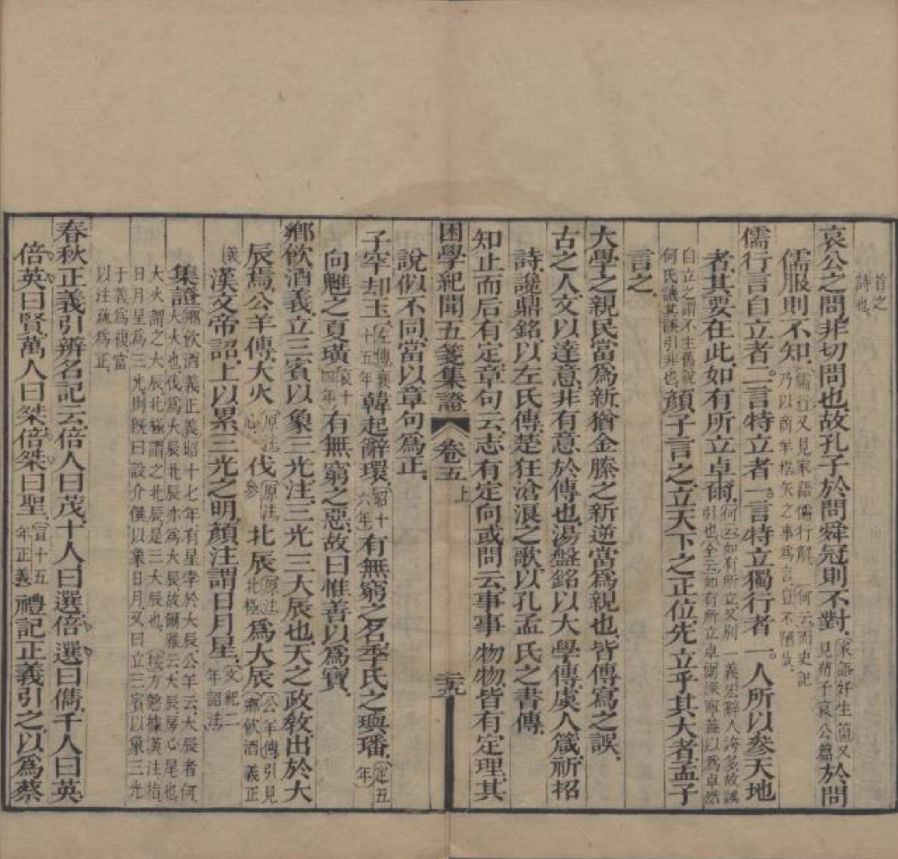 首之
詩也
哀公之問非切問也故孔子於問舜冠則不對家語好生篇又見荀子哀公篇於問
儒服則不知儒行又見家語儒行解何云而史記乃以商羊楛矢之事為言豈不陋哉
儒行言自立者二言特立者一言特立獨行者一人所以參天地
者其要在此如有所立卓爾何云如有所立又別一義宏辭人誇多故誤引也全云如有所立卓爾深寧蓋以為卓然
自立之謂不主舊說何氏議其誤引非也顏子言之立天下之正位先立乎其大者孟子
言之
大學之親民當為新猶金縢之新逆當為親也皆傳寫之誤
古之人文以達意非有意於傳也湯盤銘以大學傳虞人箴祈招
詩讒鼎銘以左氏傳楚狂滄浪之歌以孔孟氏之書傳
知止而后有定章句云志有定向或問云事事物物皆有定理其
困學紀聞五箋集證 卷五上 三九
說似不同當以章句為正
子罕却玉左傳襄十五年韓起辭環昭十六年有無窮之名季氏之璵璠定五年
向魋之夏璜哀十四年有無窮之惡故曰惟善以為寶
鄉飲酒義立三賓以象三光注三光三大辰也天之政教出於大
辰焉公羊傳大火原注心伐原注參北辰原注北極為大辰公羊傳引見鄉飲酒義正
義漢文帝詔上以累三光之明顏注謂日月星文紀二年詔注
集證鄉飲酒義正義昭十七年有星孛於大辰公羊云大辰者何
大火也伐為大辰北辰亦為大辰故爾雅云大辰房心尾也
大火謂之大辰北極謂之北辰是三大辰也按方慤據漢注指
日月星為三光則既曰設介僎以象日月又曰立三賓以象三光
於義為複當
以注疏為正
春秋正義引辨名記云倍人曰茂十人曰選倍選曰儁千人曰英
倍英曰賢萬人曰桀倍桀曰聖宣十五年正義禮記正義引之以為蔡